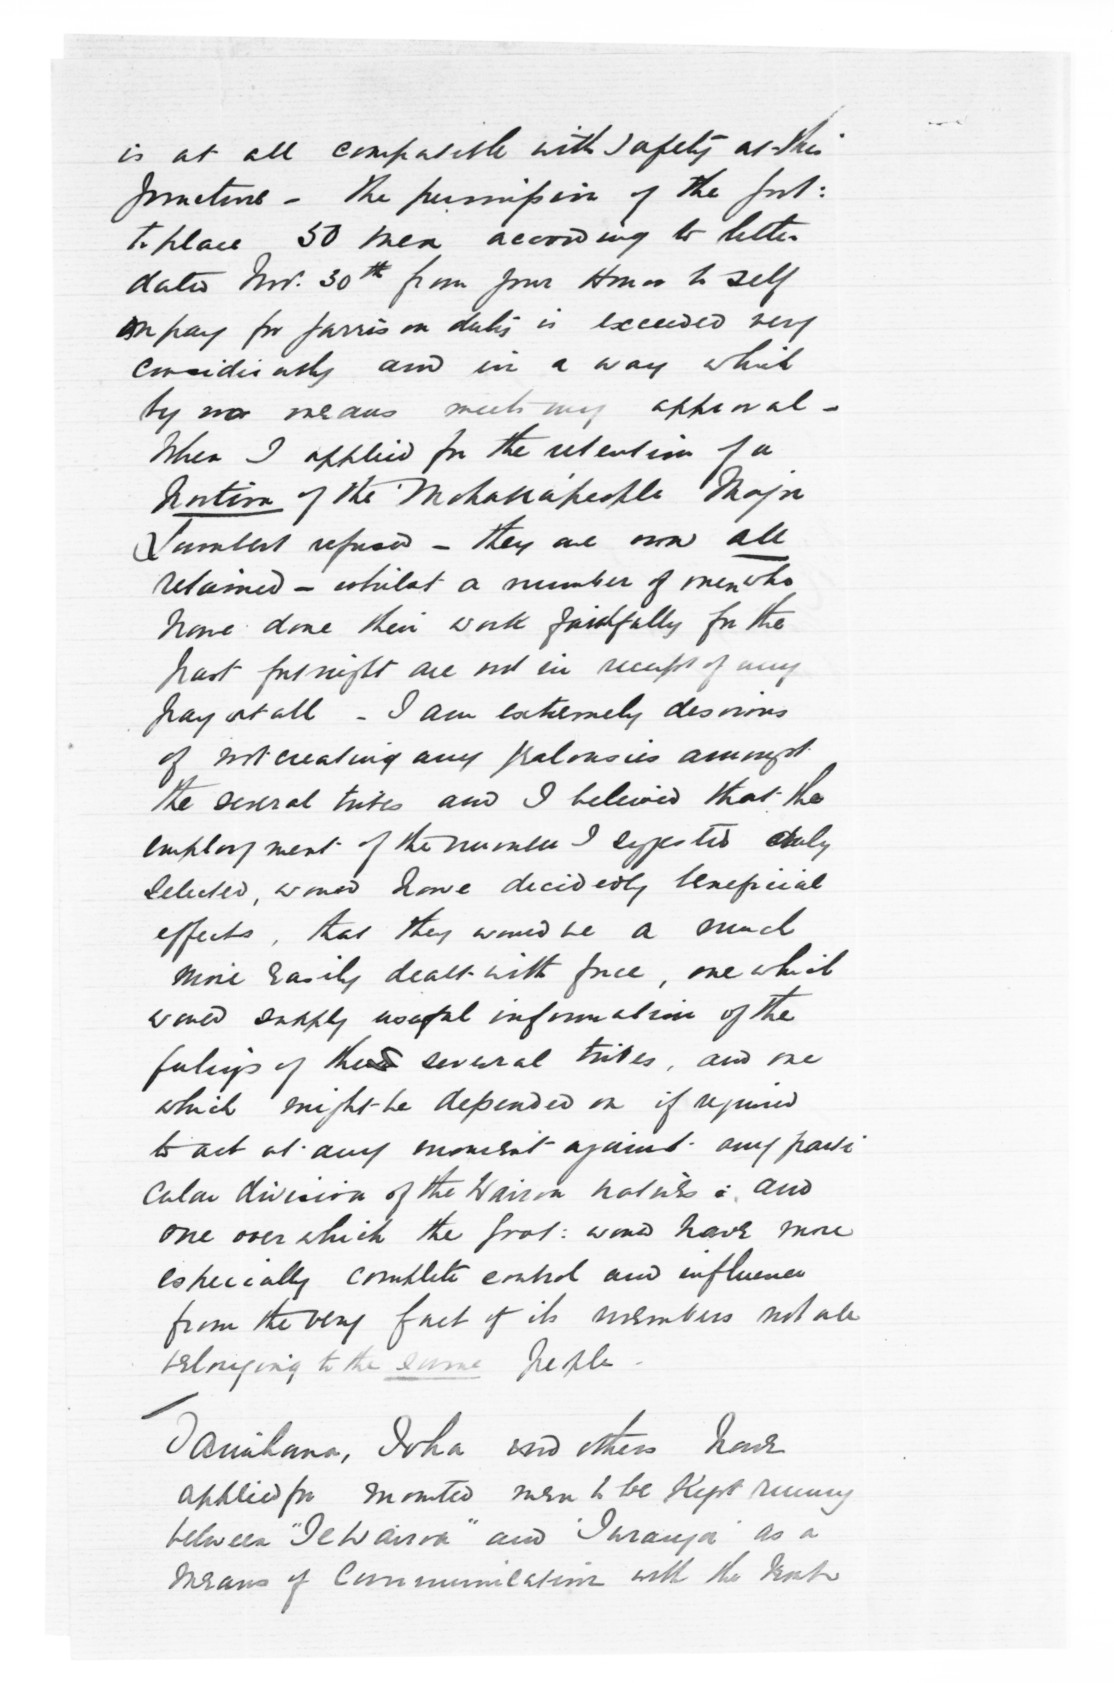 is at all compatible with safety at this
juncture - the permission of the Govt:
to place 50 men according to letter
dated Nov. 30th from your Honor to self
on pay for garrison duty is exceeded very
considerably and in a way which
by no means meets my approval -
When I applied for the retention of a
portion of the people Major
Lambert refused - they are now all
retained - whilst a number of men who
have done their work faithfully for the
past fortnight are not in receipt of any
pay at all - I am extremely desirous
of not creating any jealousies amongst
the several tribes and I believed that the
employment of the number I suggested duly
selected, would have decidedly beneficial
effects, that they would be a much
more easily dealt with force, one which
would supply useful information of the
feelings of the several tribes, and one
which might be depended on if required
to act at any moment against any parti
cular division of the Wairoa natives; and
one over which the Govt: would have more
especially complete control and influence
from the very fact of its members not all
belonging to the same people -
Tamihana, Ihaka and others have
applied for mounted men to be kept running
between "Te Wairoa" and 'Turanga' as a
means of communication with the